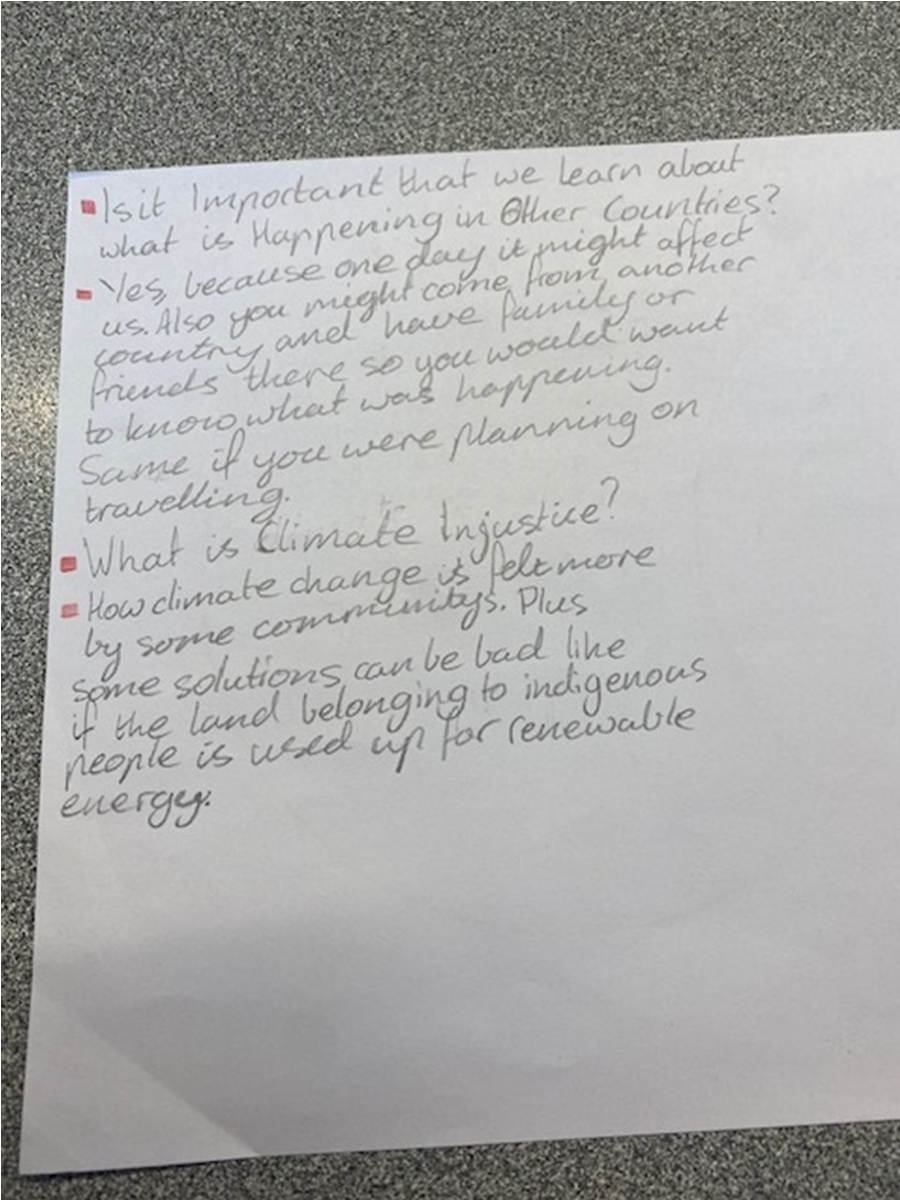 Is it Important that we learn about
what is Happening in Other Countries?
Yes, because one day it might affect
us. Also you might come from another
country and have family or
friends there so you would want
to know what was happening.
Same if you were planning on
travelling.
What is Climate Injustice?
How climate change is felt more
by some communitys. Plus
some solutions can be bad like
if the land belonging to indigenous
people is used up for renewable
energy.